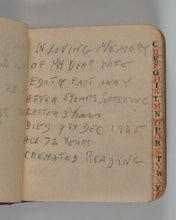 IN LOVING MEMORY
OF MY DEAR WIFE
EDITH PAST AWAY
AFTER 5 YEARS SUFFERING
LATTER 3
DIED 9TH DEC 1965
AGE 72 YEARS
CREMATED READING
C
D
E
G
H
I
L
M
N
O
P
R
S
T
W
Y